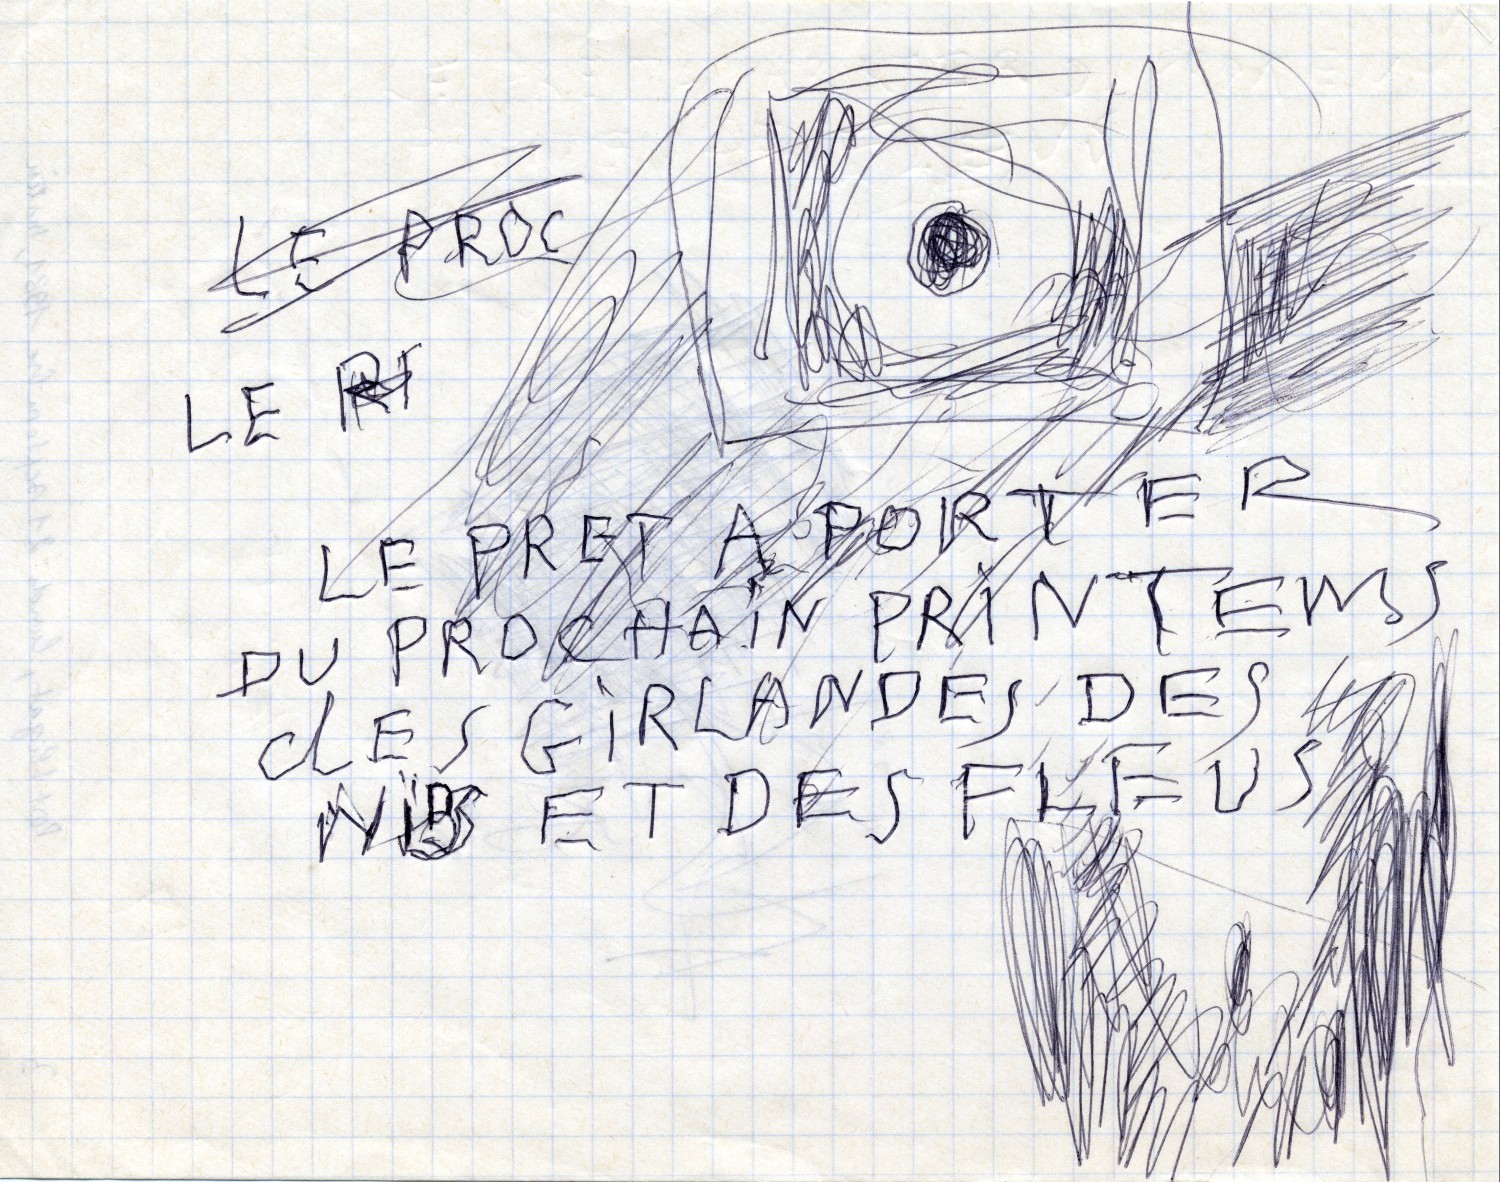 LE PROC
LE
LE PRET A PORTER
DU PROCHAIN PRINTEMS
dES GIRLANDES DES
NIDS ET DES FLEUS